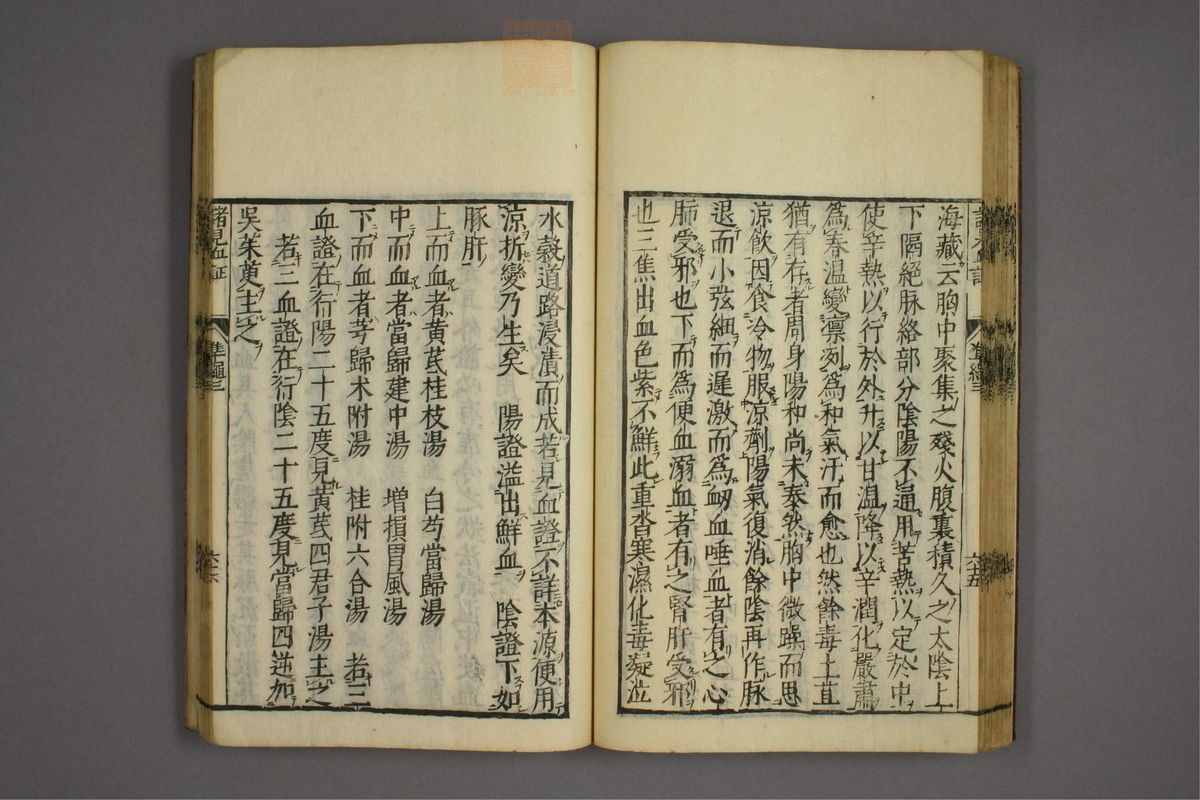 海藏云胸中聚集之殘火腹裏積久之太陰上
下隔絕脉絡部分陰陽不通用苦熱以定於中
使辛熱以行於外升以甘溫降以辛潤化嚴肅
爲春溫變凛冽爲和氣汗而愈也然餘毒土苴
猶有存者周身陽和尚未泰然胸中微躁而思
涼飲因食冷物服涼劑陽氣復消餘陰再作脉
退而小弦細而遲激而爲衂血唾血者有之心
肺受邪也下而爲便血溺血者有之腎肝受邪
也三焦出血色紫不鮮此重沓寒濕化毒凝泣
水穀道路浸漬而成若見血證不詳本源便用
涼折變乃生矣 陽證溢出鮮血 陰證下如
豚肝
上而血者黃芪桂枝湯 白芍當歸湯
中而血者當歸建中湯 增損胃風湯
下而血者芎歸术附湯 桂附六合湯 若三
血證在行陽二十五度見黃芪四君子湯主之
若三血證在行陰二十五度見當歸四逆加
吳茱萸主之
諸見血証 準繩三 六十六